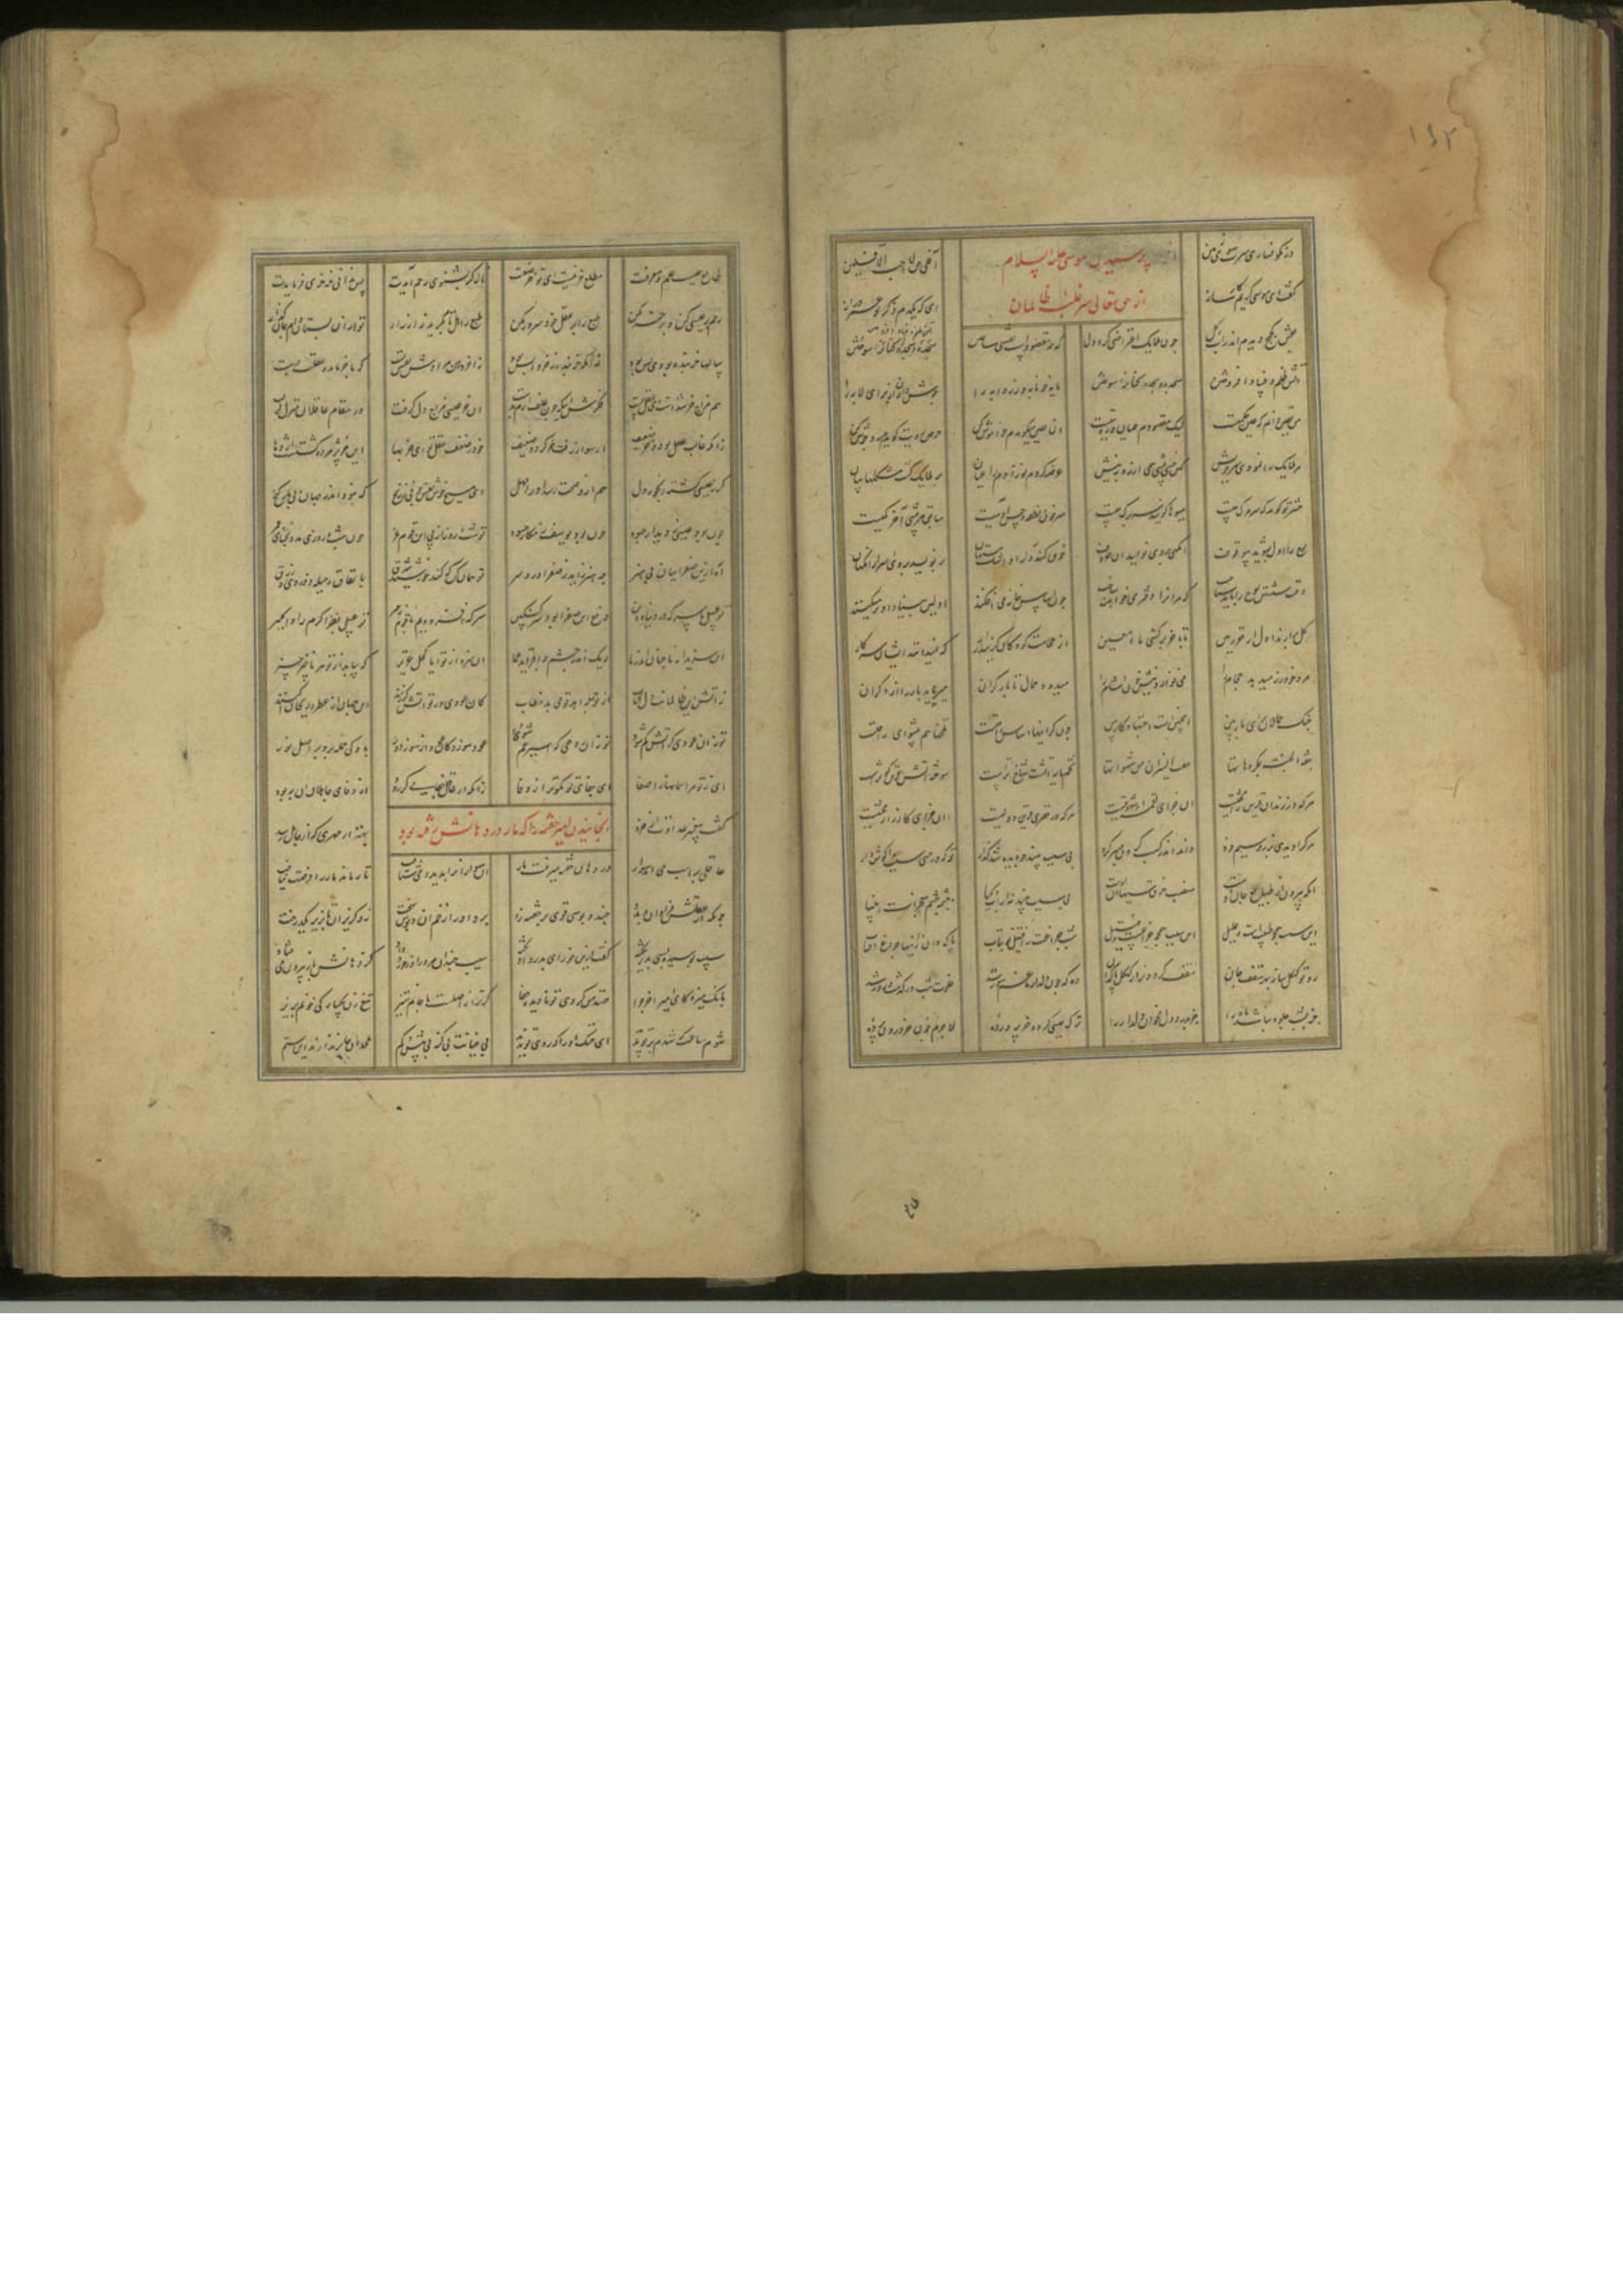 ۱۶۲
در نکوساری سرت سوی زمین آفلی حق لا احب الآفلین
پرسیدن موسی علیه السلام
از حق تعالی سر غلبه ظالمان
گفت موسی ای کریم کارساز ای که یکدم ذکر تو عمر دراز
نقش کژمژ دیدم اندر آب و گل چون ملایک اعتراضی کرد دل که چه مقصودست نقشی ساختن
آتش ظلم و فساد افروختن مسجد و سجده کنان را سوختن مایه خونابه و زردابه را جوش دادن از برای لابه را
من یقین دانم که عین حکمتست لیک مقصودم عیان و رویتست آن یقین میگویدم خاموش کن حرص رویت گویدم نه جوش کن
مر ملایک را نمودی سر خویش کین چنین نوشی همی ارزد بنیش عرضه کردی نور آدم را عیان بر ملایک گشت مشکلها بیان
حشر تو گوید که سر مرگ چیست میوها گویند سر برگ چیست سر خون و نطفه حسن آدمیست سابق هر بیشی آخر کمیست
لوح را اول بشوید بی وقوف آنگهی بر وی نویسد او حروف خون کند دل را و اشک مستهان بر نویسد بر وی اسرار آنگهان
وقت شستن لوح را باید شناخت که مر آنرا دفتری خواهند ساخت چون اساس خانه می افکنند اولین بنیاد را بر میکنند
گل برارند اول از قعر زمین تا بآخر بر کشی ماء معین از حجامت کودکان گریند زار که نمیدانند ایشان سر کار
مرد خود زر میدهد حجام را می نوازد نیش خون آشام را میدود حمال تا بار گران میرباید بار را از دگران
جنگ حمالان برای بار بین اینچنین است اجتهاد کاربین چون گرانیها اساس راحتست تلخها هم پیشوای راحتست
حفت الجنة بمکروهاتنا حفت النیران من شهواتنا تخم مایه آتشت شاخ ترست سوخته آتش قرین کوثرست
هرکه در زندان قرین محنتیست آن جزای لقمه و شهوتیست هرکه در قصری قرین دولتیست آن جزای کارزار و محنتیست
هرکرا دیدی بزر و سیم فرد دانکه اندر کسب کردن صبر کرد بی سبب بیند چو دیده شد گذار تو که در حسی سبب را گوش دار
آنکه بیرون از طبایع جان اوست منصب خرق سببها آن اوست بی سبب بیند نه از آب و گیا چشم چشمه معجزات انبیا
این سبب همچو طبیبست و علیل این سبب همچو چراغست و فتیل شب چراغت را فتیل نو بتاب پاک دان زینها چراغ آفتاب
رو تو کهگل ساز بهر سقف خان سقف گردون را ز کهگل پاک دان ده که چون دلدار ما غمسوز شد خلوت شب در گذشت و روز شد
جز بشب جلوه نباشد ماه را جز بدرد دل ترک عیسی کرده خر پرورده لاجرم چون خر برون پرده
طالع عیسیست علم و معرفت طالع خر نیست ای تو خر صفت ناله خر بشنوی رحم آیدت پس ندانی خر خری فرمایدت
رحم بر عیسی کن و بر خر مکن طبع را بر عقل خود سرور مکن طبع را هل تا بگرید زار زار تو ازان بستان و وام جان گزار
سالها خربنده بودی بس بود زانکه خربنده ز خر واپس بود ز اخروهن مرادش نفس تست کو بآخر باید و عقلت نخست
هم مزاج خر شدست این عقل پست فکرش اینکه چون علف آرد بدست آن خر عیسی مزاج دل گرفت در مقام عاقلان منزل گرفت
زانکه غالب عقل بود و خر ضعیف از سوار زفت گردد خر نحیف وز ضعیفی عقل تو ای خربها این خر پژمرده گشتست اژدها
گر ز عیسی گشته رنجور دل هم ازو صحت رسد او را مهل ای مسیح خوش نفس چونی ز رنج که نبود اندر جهان بی مار گنج
چون بود عیسی ز دیدار جهود چون بود یوسف ز مکار حسود تو شب و روز از پی این قوم غمر چون شب و روزی مدد بخشای عمر
آه ازین صفراییان بی هنر چه هنر زاید ز صفرا درد سر تو همان کن که کند خورشید شرق با نفاق و حیله و دزدی و زرق
تو عسل ما سرکه در دنیا و دین دفع این صفرا بود سرکنگبین سرکه افزودیم ما قوم زحیر تو عسل بفزا کرم را وا مگیر
این سزید از ما چنان آمد ز ما ریگ اندر چشم چه افزاید عما آن سزد از تو ایا کحل عزیز که بیابد از تو هر ناچیز چیز
ز آتش این ظالمانت دل کباب از تو جمله اهد قومی بد خطاب کان عودی در تو گر آتش زنند این جهان از عطر و ریحان آکنند
تو نه آن عودی کز آتش کم شود تو نه آن روحی که اسیر غم شود عود سوزد کان عود از سوز دور باد کی حمله برد بر اصل نور
ای ز تو مر آسمانها را صفا ای جفای تو نکوتر از وفا زانکه از عاقل جفایی گر رود از وفای جاهلان آن به بود
گفت پیغمبر عداوت از خرد بهتر از مهری که از جاهل رسد
رنجانیدن امیر خفته را که مار در دهانش رفته بود
عاقلی بر اسب می آمد سوار در دهان خفته میرفت مار آن سوار آنرا بدید و می شتافت تا رماند مار را فرصت نیافت
چونکه از عقلش فراوان بد مدد چند دبوسی قوی بر خفته زد برد او را زخم آن دبوس سخت زو گریزان تا بزیر یک درخت
سیب پوسیده بسی بد ریخته گفت ازین خور ای بدرد آویخته سیب چندان مرورا در خورد داد کز دهانش باز بیرون می فتاد
بانگ میزد کای امیر آخر چرا قصد من کردی تو نادیده جفا گر ترا ز اصلست با جانم ستیز تیغ زن یکبارگی خونم بریز
شوم ساعت که شدم بر تو پدید ای خنک آنرا که روی تو ندید بی جنایت بی گنه بی بیش و کم ملحدان جایز ندارند این ستم